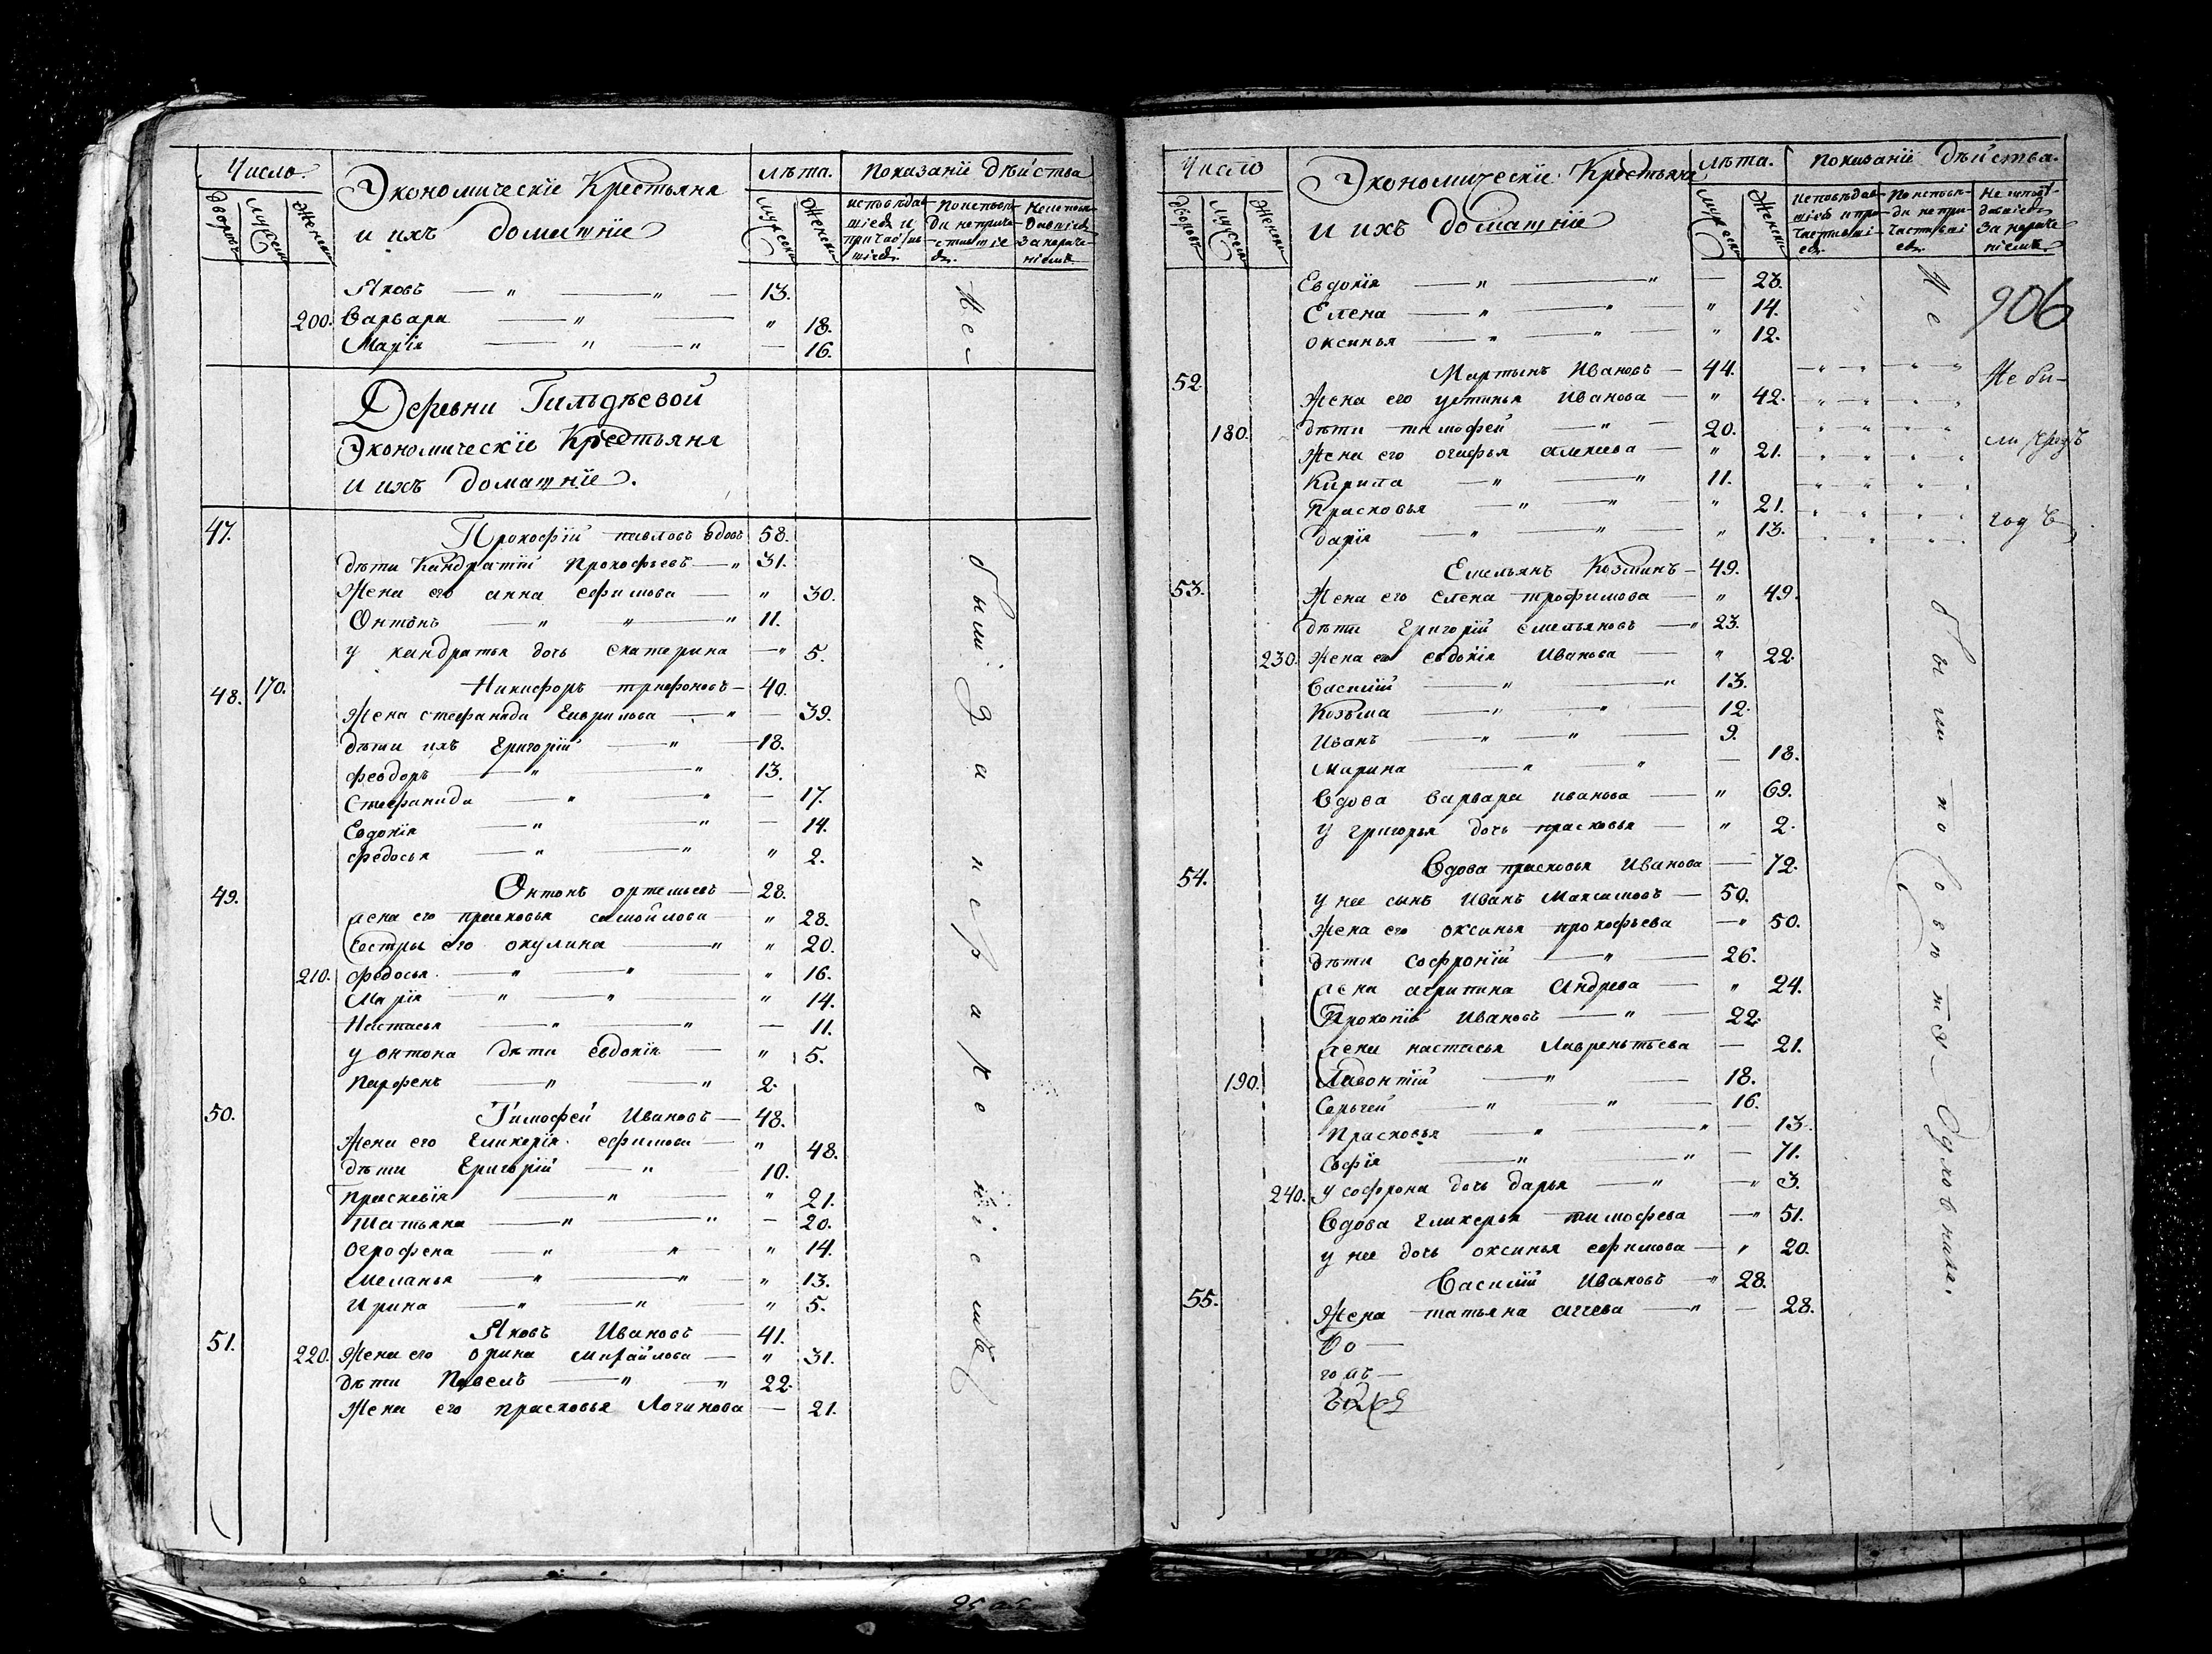 Число.
Экономическіе Крестьяня
лѣта.
Показаніи дѣйства
и ихъ доматніе
дворовъ
мужеска
Женска
мужеска
Женска
исповѣдав-
шіеся и
причастив
шіеся.
По исповѣ-
ди неприча-
стившіе
ся.
Неисповѣ-
давшіеся
За нераче-
ніемъ
Яковъ — " — " — 13.
200. Варвара — " — " 18.
Марія — " — " — 16.
Деревни Гильдѣевой
Экономическіе Крестьяня
и ихъ доматніе.
47. Прокофій павловъ вдовъ 58.
дѣти Кандратій Прокофьевъ — " 31.
Жена его анна ефимова — " 30.
Онтонъ — " " — " 11.
у кандратья дочь екатерина — " 5.
48. 170. Никифоръ трифоновъ — 40.
Жена стефанида Гаврилова — " — 39.
дѣти ихъ Григорій — " — 18.
феодоръ — " — " 13.
Стефанида — " — " — 17.
Евдокія — " — " — 14.
федосья — " — " " 2.
49. Онтонъ ортемьевъ — 28.
жена его прасковья самойлова — " 28.
Сестры его окулина — " " 20.
210. федосья — " — " — " 16.
Марія — " — " — " 14.
Настасья — " — " — 11.
у онтона дѣти евдокія — " 5.
Парфенъ — " — " 2.
50. Тимофей Ивановъ — 48.
Жена его Гликерія ефимова — " 48.
дѣти Григорій — " — 10.
Прасковія — " — " 21.
Татьяна — " — " — 20.
Огрофена — " — " — " 14.
Меланья — " — " — " 13.
Ирина — " — " — " 5.
51. Яковъ Ивановъ — 41.
220. Жена его орина Михайлова — " 31.
дѣти Павелъ — " — " 22.
Жена его прасковья Логинова — 21.
Не-
были За нераченіемъ
Число
Экономическіе Крестьяня
лѣта.
Показаніи дѣйства.
и ихъ доматніе
дворовъ
мужеска
Женска
мужеска
Женска
исповѣдав-
шіеся и при-
частивші-
ся.
По исповѣ-
ди не при-
частивші
ся.
Не исповѣ-
давшіеся
За нераче-
ніемъ.
906
Евдокія — " — " — 23.
Елена — " — " — " 14.
оксинья — " — " — " 12.
52. Мартынъ Ивановъ — 44.
Жена его устинья Иванова — " 42.
180. дѣти тимофей — " — 20.
Жена его огафья алекиева — " 21.
Кирила — " — " 11.
Прасковья — " — " — " 21.
дарія — " — " — " 13.
Не бы-
ли чрезъ
годъ
53. Емельянъ Козминъ — 49.
Жена его елена трофимова — " 49.
дѣти Григорій емельяновъ — " 23.
230. Жена его евдокія Иванова — " 22.
Василій — " — " 13.
Козьма — " — " — 12.
Иванъ — " — " — 9.
Марина — " — " — 18.
Вдова варвара иванова — " 69.
У григорья дочь прасковья — " 2.
54. Вдова прасковья Иванова — 72.
у нее сынъ Иванъ Максимовъ — 50.
Жена его оксинья прокофьева — " 50.
дѣти софроній — " — 26.
жена агрипина Андрева — " 24.
Прокопій Ивановъ — " — 22.
жена настасья Лавреньтьева — 21.
190. Лавонтій — " — 18.
Сергей — " — " — 16.
Прасковья — " — " — 13.
Софія — " — " — 11.
240. у софрона дочь дарья — " — " 3.
Вдова гликерья тимофева — " 51.
у нее дочь оксинья ефимова — " 20.
55. Василій Ивановъ — " 28.
Жена татьяна агеева — " — 28.
Не
были по